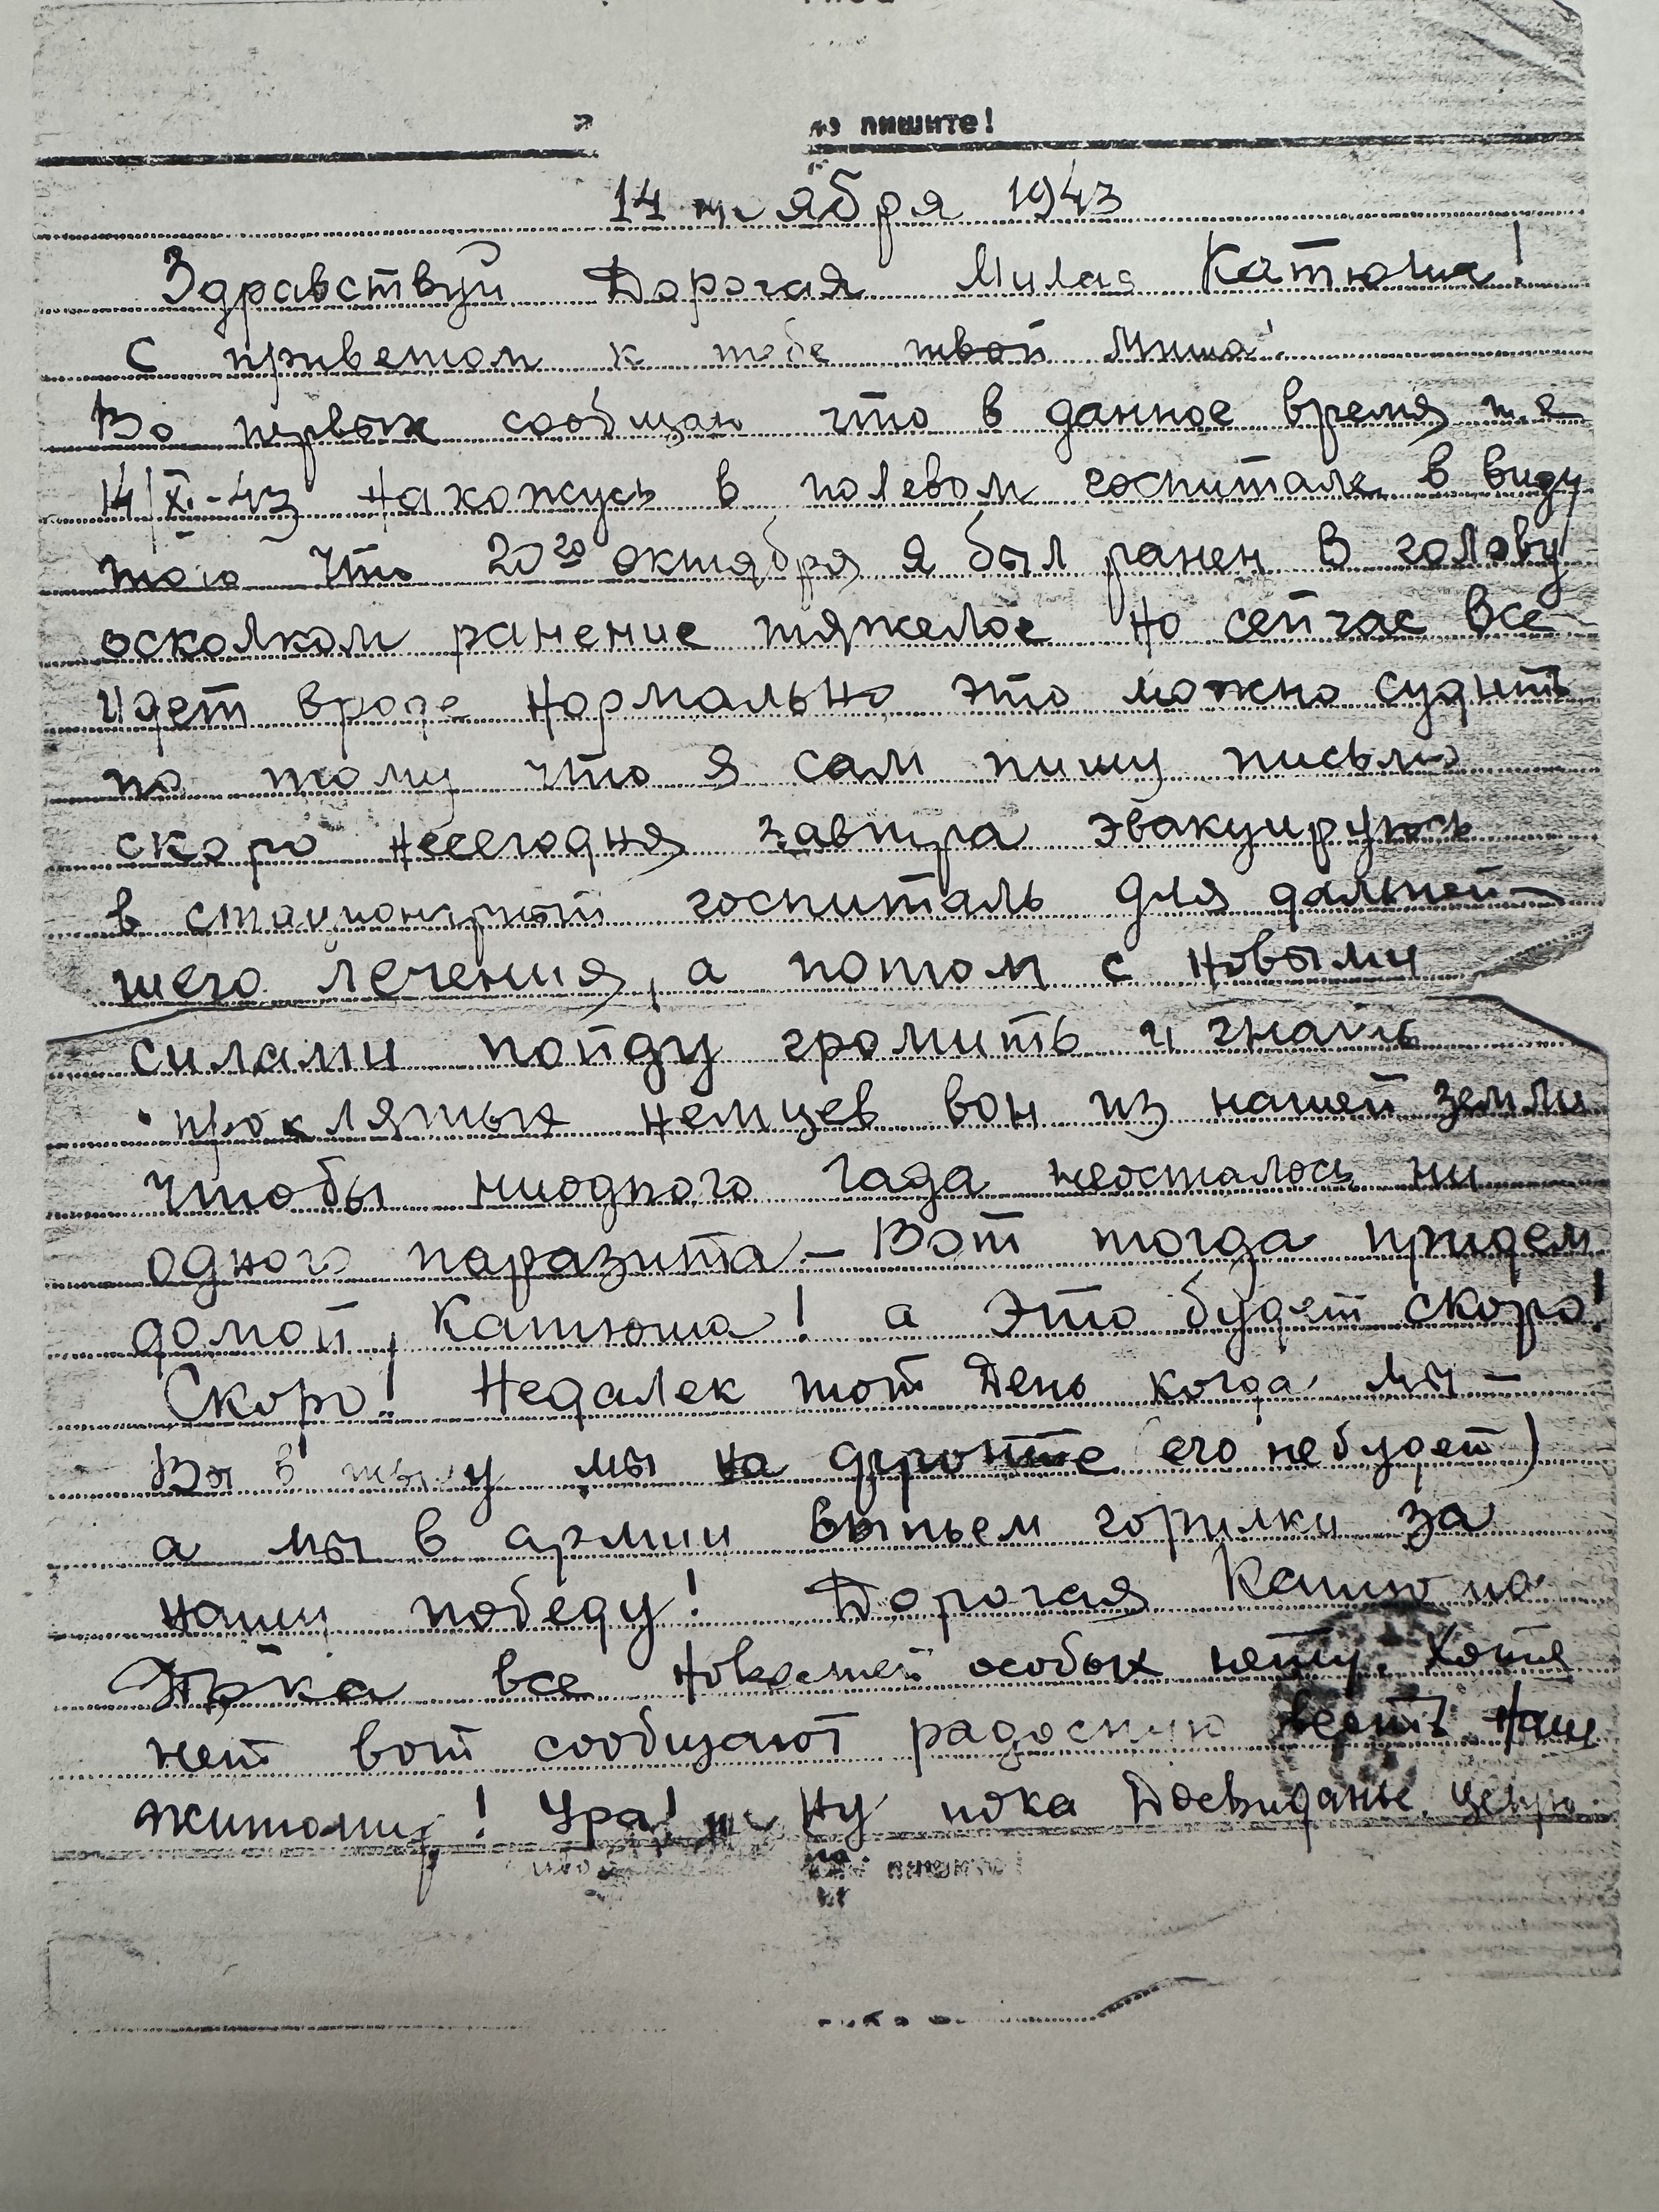 пишите!
14 ноября 1943
Здравствуй Дорогая Милая Катюша!
С приветом к тебе твой Миша
Во первых сообщаю что в данное время т.е
14/XI-43 Нахожусь в полевом госпитале в виду
того что 20го октября я был ранен в голову
осколком ранение тяжелое но сейчас все
идет вроде нормально это можно судить
по тому что я сам пишу письмо
скоро несегодня завтра эвакуируюсь
в стационарный госпиталь для дальней-
шего лечения, а потом с новыми
силами пойду громить и гнать
проклятых немцев вон из нашей земли
чтобы ниодного гада неосталось ни
одного паразита – Вот тогда придем
домой, Катюша! а Это будет скоро!
Скоро! Недалек тот День когда мы –
Вы в тылу мы на фронте (его небудет)
а мы в армии выпьем горилки за
нашу победу! Дорогая Катюша
все новостей особых нету. Хотя
нет вот сообщают радосную весть наш
житомир! Ура! Ну пока Досвиданье целую
пишите!